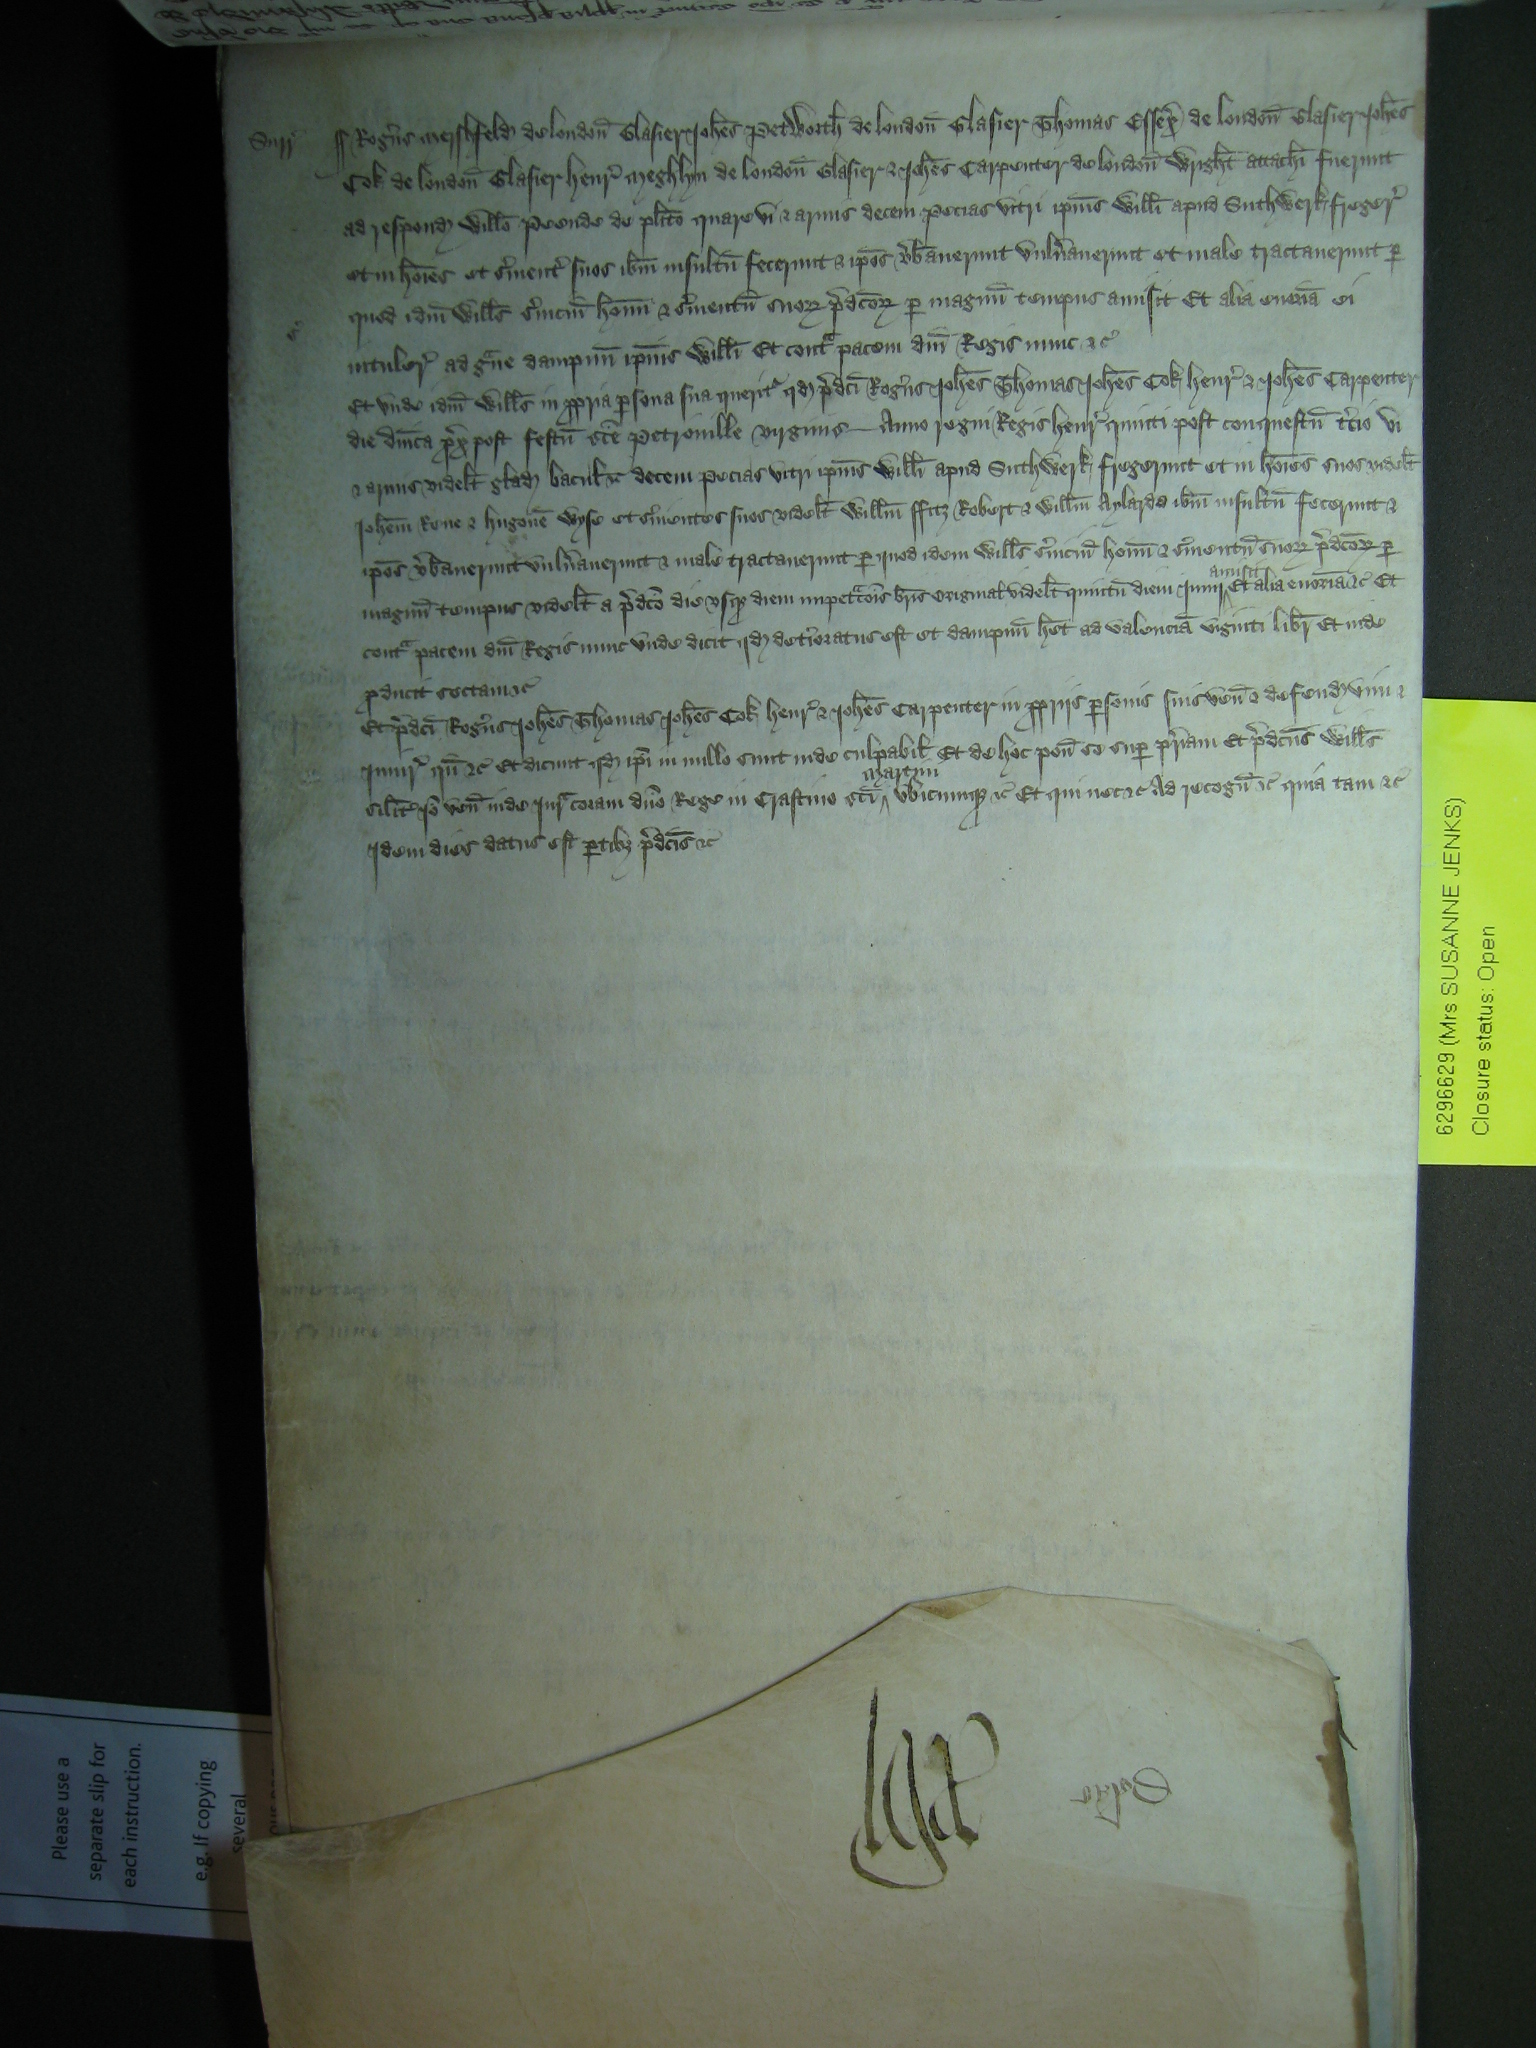 Surr' ss Rog̃us Merssfeld de london̄ Glasier Joh̄es Petworth̄ de london̄ Glasier Thomas Essex de london̄ Glasier Joh̄es
Cok de london̄ Glasier henr' Meghhm de london̄ Glasier & Joh̄es Carpenter de london̄ Wright attach̄i fuerunt
ad respond' Will̄o Peende de pl̄ito quare vi & armis decem pecias vitri ip̄ius Will̄i apud Suthwerk freger'
et in hōies et s'uient' suos ib̄m insultū fecerunt & ip̄os v'b̄auerunt vuln̄auerunt et male tractauerunt p
quod id̄m Will̄s s'uiciū hom̄i & s'uientū suoꝝ p̄dc̄oꝝ p magnū tempus amisit Et alia enor̄ia ei
intuler' ad gᵃue dampnū ip̄ius Will̄i Et contᵃ pacem dn̄i Regis nunc &c̄
Et vnde id̄m Will̄s in ppria psona sua querit' qd p̄dc̄i Rog̃us Joh̄es Thomas Joh̄es Cok henr' & Joh̄es Carpenter
die dn̄ica px̄ post festū sc̄e Petronille virginis Anno regni Regis henr' quinti post conquestū t'cio vi
& armis videlt̄ glad' bacul' &c̄ decem pecias vitri ip̄ius Will̄i apud Suthwerk fregerunt et in hōies suos videlt̄
Joh̄em Rene & hugonē Wyse et s'uientes suos videlt̄ Will̄m ffitz Robert & Will̄m Aylarde ib̄m insultū fecerunt &
ip̄os v'b̄auerunt vuln̄auerunt & male tractauerunt p quod idem Will̄s s'uiciū hom̄i & s'uientū suoꝝ p̄dc̄oꝝ p
magnū tempus videlt̄ a p̄dc̄o die vsqȝ diem impetᵃcōis br̄is original' videlt̄ quintū diem Junij amisit Et alia enor̄ia &c̄ Et
contᵃ pacem dn̄i Regis nunc vnde dicit qd det'ioratus est et dampnū h̄et ad valenciā viginti libr' Et inde
pducit sectam &c̄
Et p̄dc̄i Rog̃us Joh̄es Thomas Joh̄es Cok henr' & Joh̄es Carpenter in pprijs psonis suis ven̄ & defend' vim &
Iniur' qn̄ &c̄ Et dicunt qd ip̄i in nullo sunt inde culpabil' Et de hoc pon̄ se sup pr̄iam Et p̄dc̄us Will̄s
silit̄ Jō ven̄ inde Jurᵃ coram dn̄o Rege in Crastino sc̄i Martini vbicumqȝ &c̄ Et qui nec &c̄ Ad recogn̄ &c̄ quia tam &c̄
Idem dies datus est ptibȝ p̄dc̄is &c̄
6296629 (Mrs SUSANNE JENKS)
Closure status: Open
Please use a
separate slip for
each instruction.
e.g. If copying
several